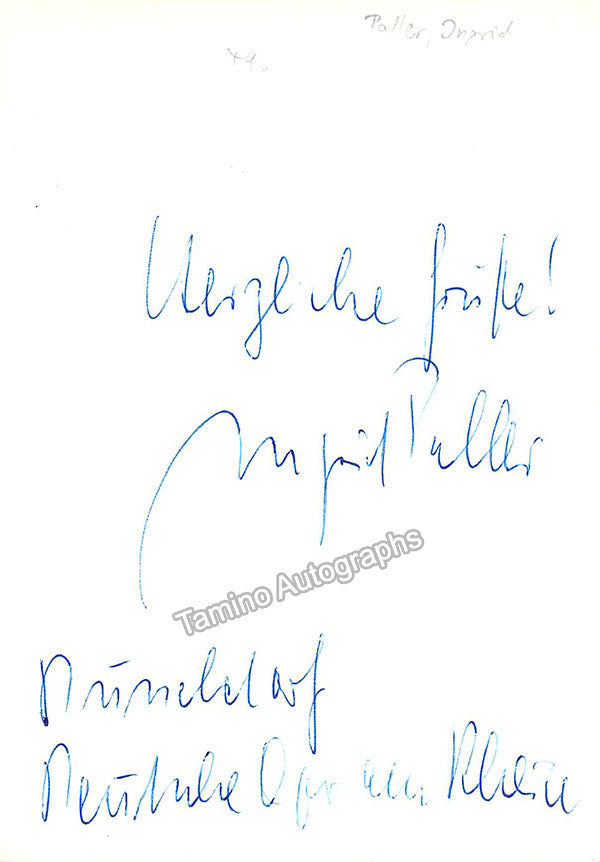 Paller, Ingrid
Herzliche Grüße!
Ingrid Paller
Tamino Autographs
Düsseldorf
Deutsche Oper am Rhein